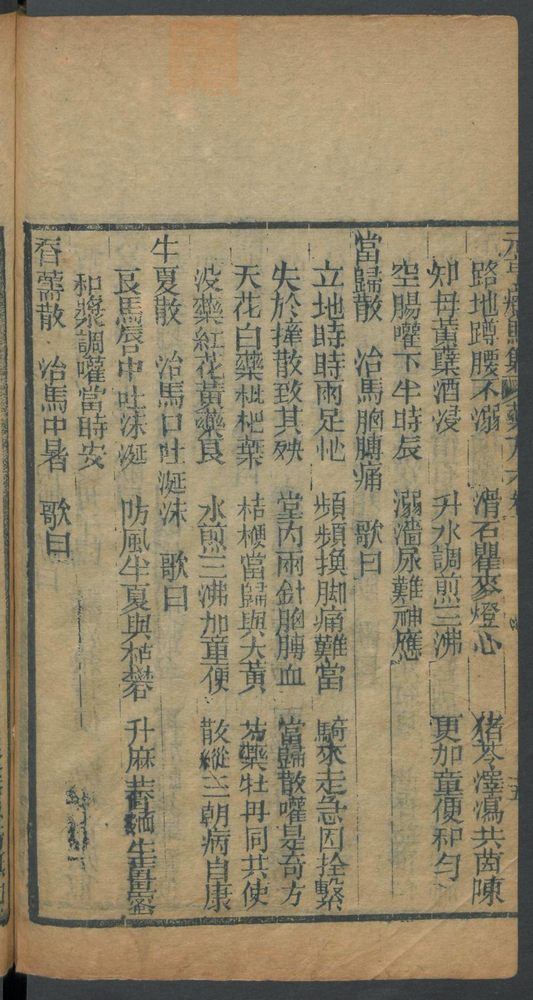 路地蹲腰不溺 滑石瞿麥燈心 猪苓澤瀉共茵陳
知母黃蘗酒浸 升水調煎三沸 更加童便和勻
空腸嚾下半時辰 溺濇尿難神應
當歸散 治馬胸膊痛 歌曰
立地時時兩足忙 頻頻換脚痛難當 騎來走急因拴繫
失於摔散致其殃 堂内兩針胸膊血 當歸散嚾是奇方
天花白藥枇杷葉 桔梗當歸與大黃 芍藥牡丹同共使
没藥紅花黃藥良 水煎三沸加童便 散縱三朝病自康
半夏散 治馬口吐涎沫 歌曰
良馬唇中吐沫涎 防風半夏與枯礬 升麻生薑蜜
和漿調嚾當時安
香薷散 治馬中暑 歌曰